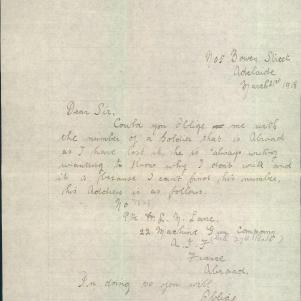 No 5 Bowen Street
Adelaide
March 2nd 1918
Dear Sir,
Could you oblige me with
the number of a Soldier that is Abroad
as I have lost it, he is always writing
wanting to know why I don't write and
it is because I can't find his number,
his Address is as follows.
No
Pte H. L. N. Lane.
22. Machine Gun Company
A. I. F.
France
Abroad.
In doing so you will
Oblige